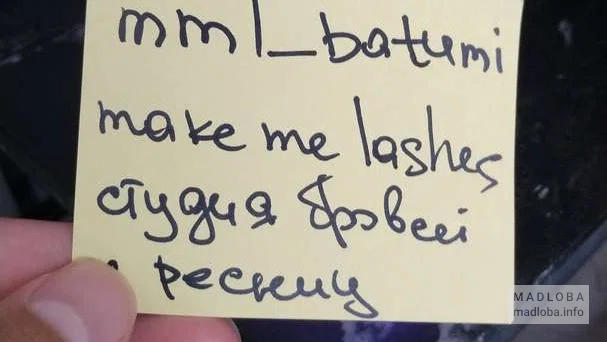 mml_batumi
make me lashes
студия бровей
и ресниц
MADLOBA
madloba.info